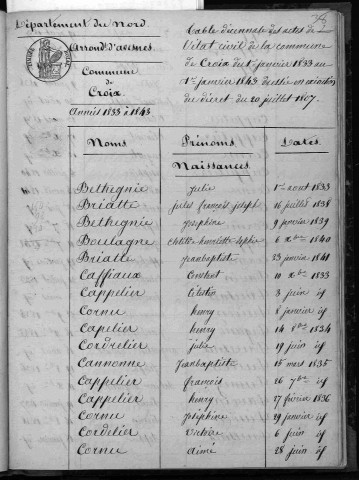 Département du Nord.
Arrond.t d'avesnes
Commune
de
Croix
Années 1833 à 1843
Table décennale des actes de
l'état civil de la commune
de Croix du 1er janvier 1833 au
1er janvier 1843 dressée en exécution
du décret du 20 juillet 1807.
Noms Prénoms Dates
Naissances
Bethegnie Julie 1er août 1833
Briatte jules françois joseph 16 juillet 1838
Bethegnie Joséphine 9 janvier 1839
Boulagne henriette 6 Xbre 1840
Briatte Jeanbaptiste 23 janvier 1841
Caffiaux Constant 10 Xbre 1833
Cappelier Célestin 3 juin if
Cornu henry 8 janvier if
Capelier henry 14 8bre 1834
Cordelier julie 19 juin if
Cannonne Jeanbaptiste 15 mars 1835
Cappelier françois 26 7bre if
Cappelier henry 27 février 1836
Cornu joséphine 29 janvier if
Cordelier Victoire 6 juin if
Cornu aimé 28 juin if